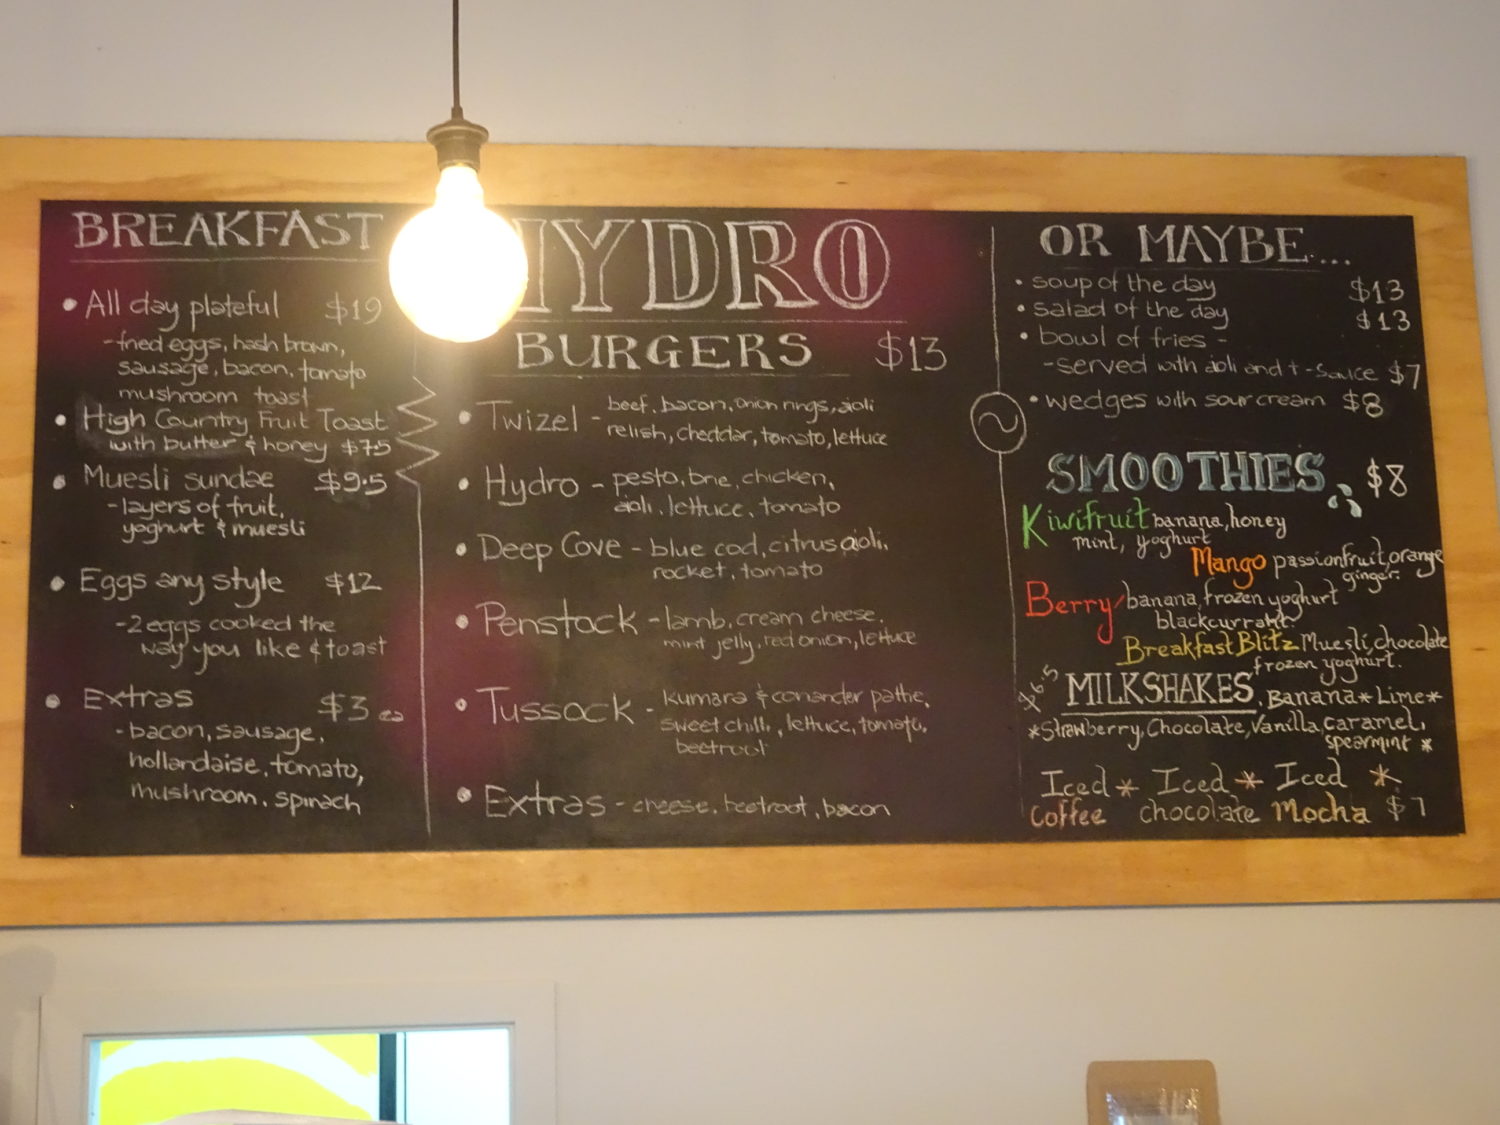 BREAKFAST
• All day plateful $19
- fried eggs, hash brown,
sausage, bacon, tomato
mushroom toast
• High Country Fruit Toast
with butter & honey $7.5
• Muesli sundae $9.5
- layers of fruit,
yoghurt & muesli
• Eggs any style $12
- 2 eggs cooked the
way you like & toast
• Extras $3 ea
- bacon, sausage,
hollandaise, tomato,
mushroom, spinach
HYDRO
BURGERS $13
• Twizel - beef, bacon, onion rings, aioli
relish, cheddar, tomato, lettuce
• Hydro - pesto, brie, chicken,
aioli, lettuce, tomato
• Deep Cove - blue cod, citrus aioli,
rocket, tomato
• Penstock - lamb, cream cheese,
mint jelly, red onion, lettuce
• Tussock - kumara & coriander pathe,
sweet chilli, lettuce, tomato,
beetroot
• Extras - cheese, beetroot, bacon
OR MAYBE....
• soup of the day $13
• salad of the day $13
• bowl of fries -
- served with aioli and t-sauce $7
• wedges with sour cream $8
SMOOTHIES $8
Kiwifruit banana, honey
mint, yoghurt
Mango passionfruit, orange
ginger.
Berry banana, frozen yoghurt
blackcurrant
Breakfast Blitz Muesli, chocolate
frozen yoghurt.
$6.5 MILKSHAKES, Banana * Lime *
* Strawberry, Chocolate, Vanilla, caramel,
spearmint *
Iced * Iced * Iced *
Coffee chocolate Mocha $7